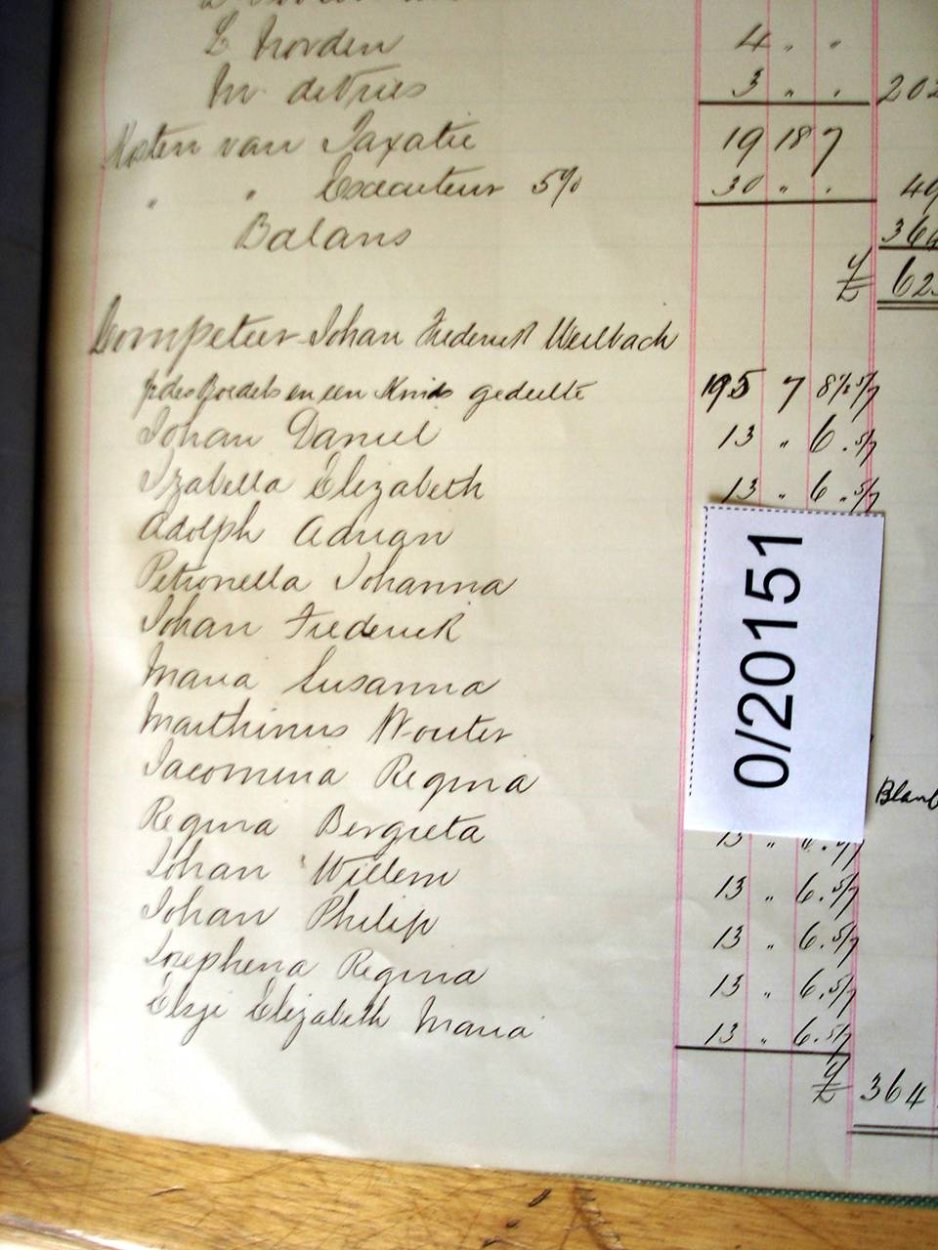 L Norden 4 " "
M deVries 3 " " 202
Kosten van Taxatie 19 18 7
" " Executeur 5% 30 " "
Balans 364
£ 62
Competeer Johan Frederick Weilbach
½ des Boedels en een Kinds gedeelte 195 7 8½ 5/7
Johan Daniel 13 " 6 . 5/7
Izabella Elizabeth 13 " 6 . 5/7
Adolph Adrian
Petronella Johanna
Johan Frederick
Maria Susanna
Marthinus Wouter
Jacomina Regina
Regina Bergreta 13 " 6 . 5/7
Johan Willem 13 " 6 . 5/7
Johan Philip 13 " 6 . 5/7
Josephena Regina 13 " 6 . 5/7
Elsje Elizabeth Maria 13 " 6 . 5/7
£ 364
0/20151